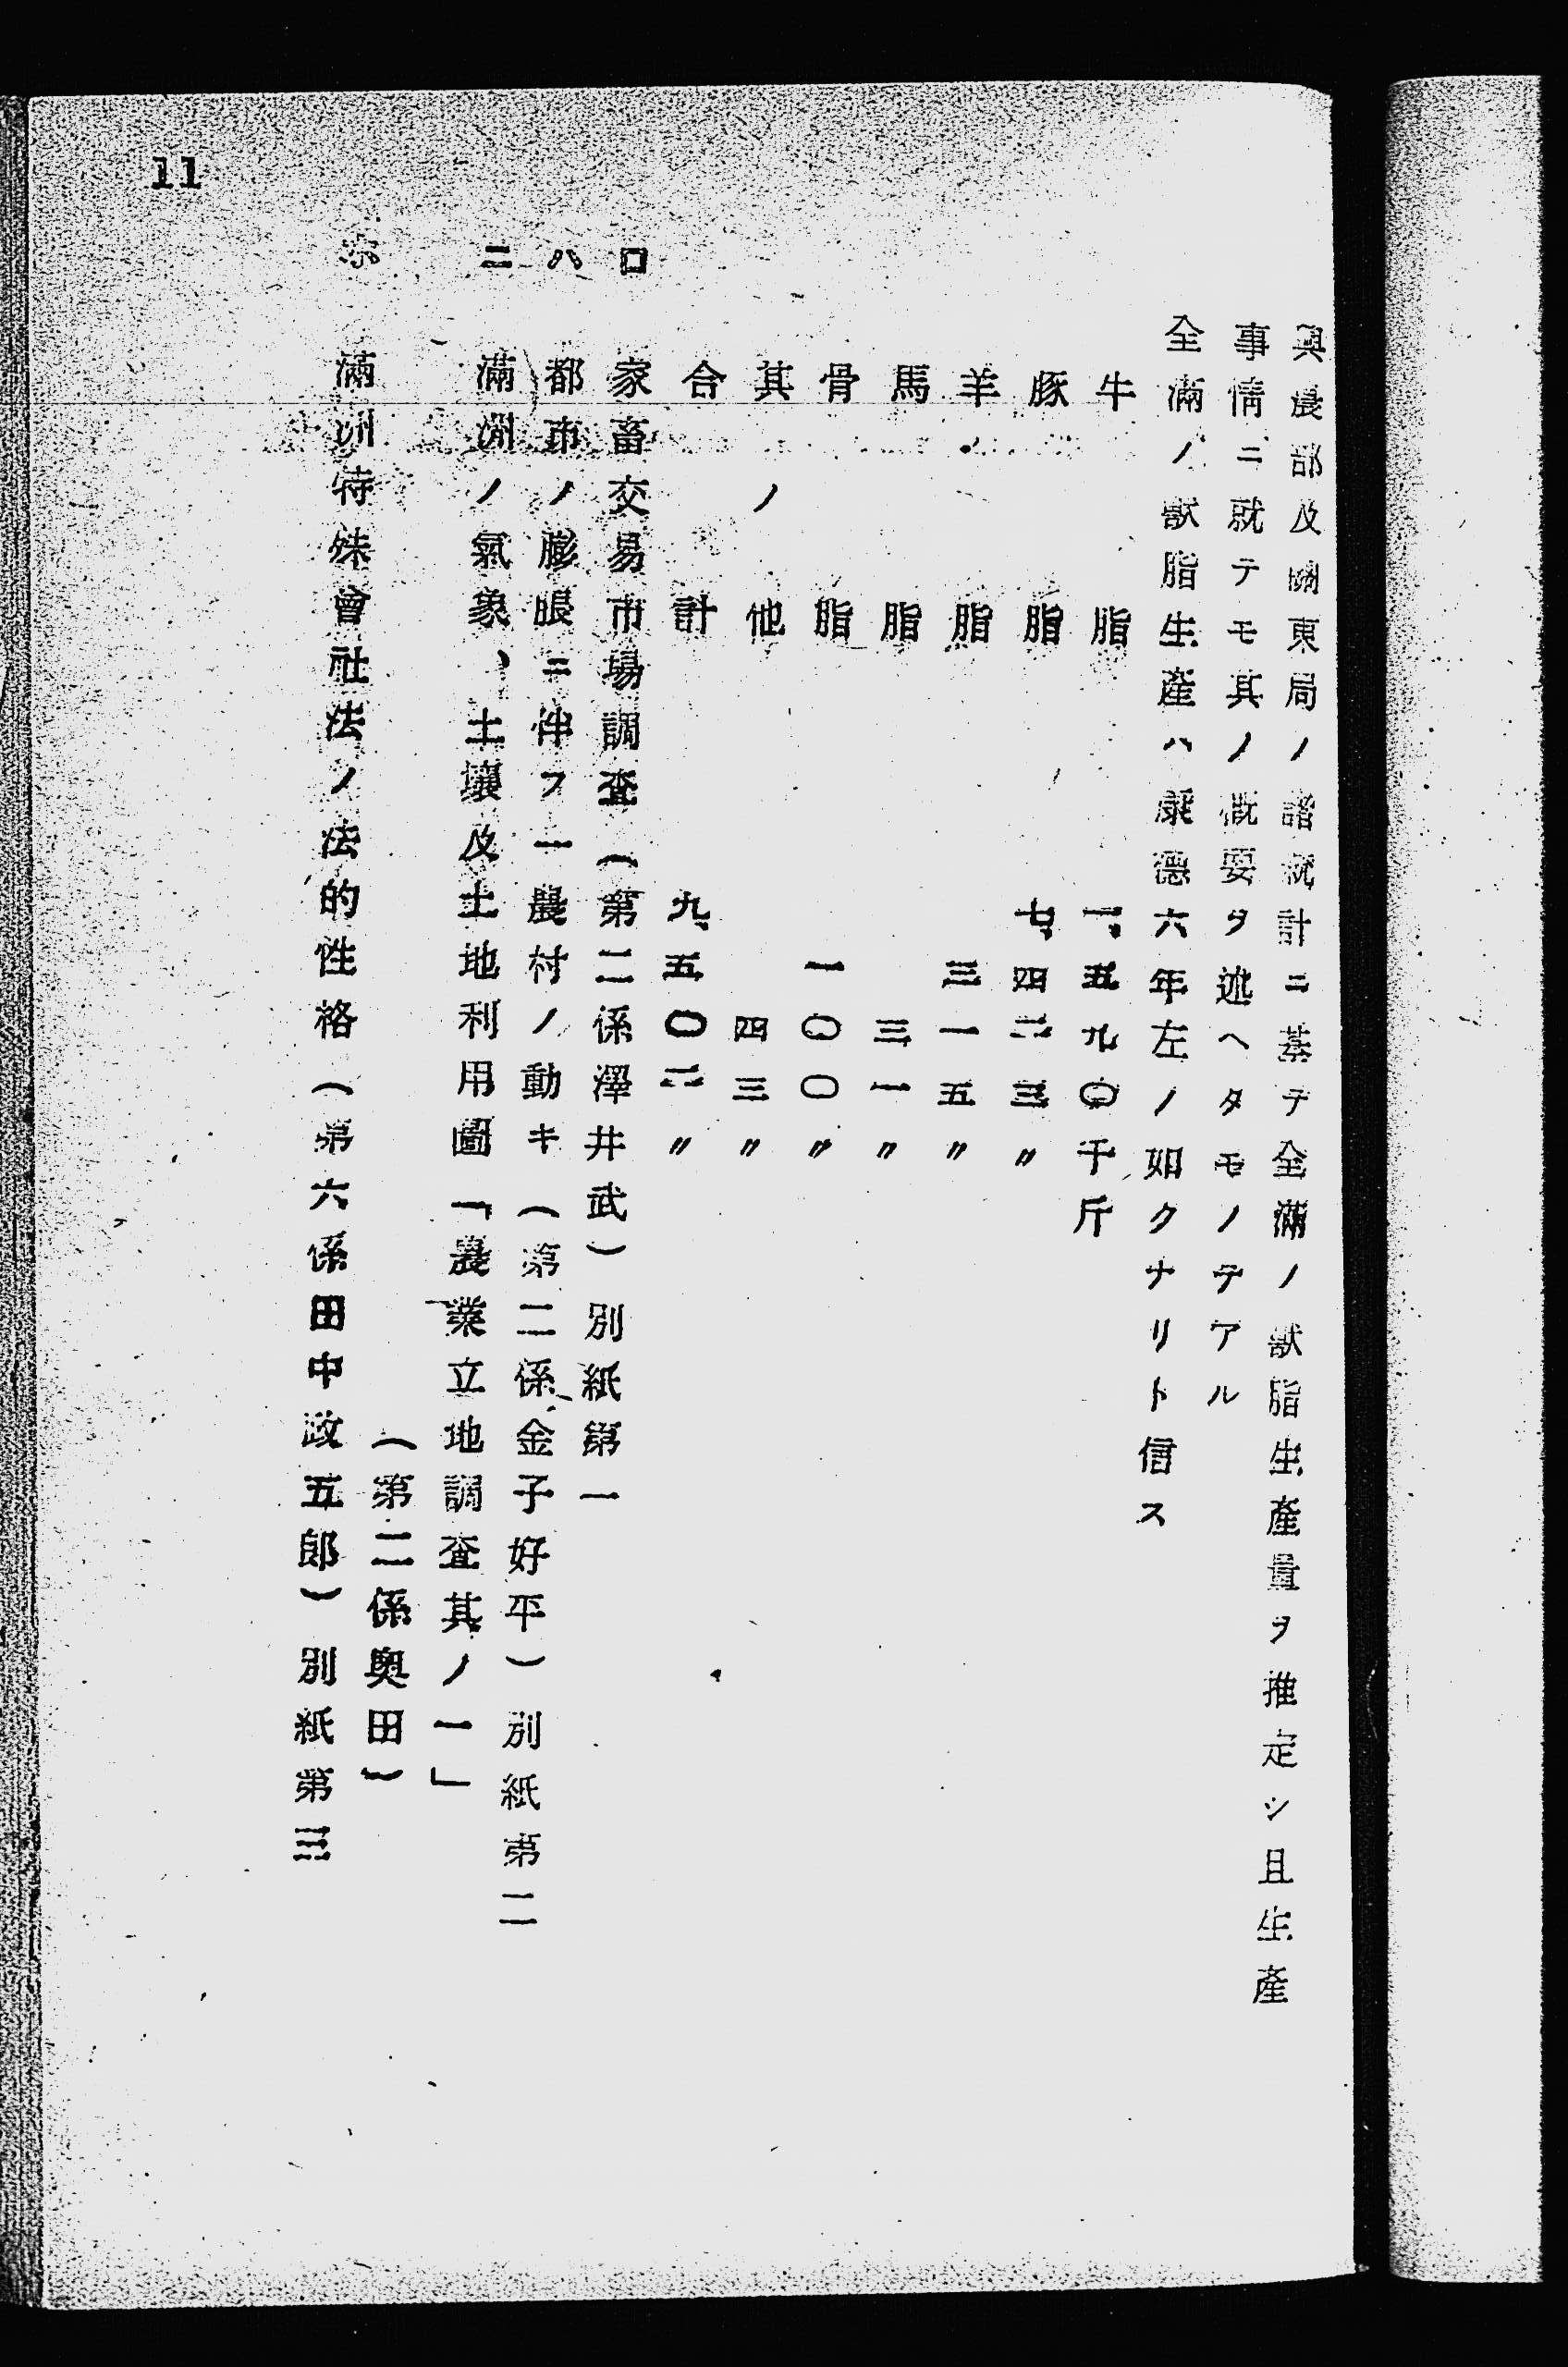 興農部及關東局ノ諸統計ニ基テ全滿ノ獸脂生產量ヲ推定シ且生產
事情ニ就テモ其ノ概要ヲ述ヘタモノデアル
全滿ノ獸脂生產ハ康德六年左ノ如クナリト信ス
牛脂 一、五九〇千斤
豚脂 七、四二三〃
羊脂 三一五〃
馬脂 三一〃
骨脂 一〇〇〃
其ノ他 四三〃
合計 九、五〇二〃
ロ 家畜交易市場調査(第二係澤井武)別紙第一
ハ 都市ノ膨脹ニ伴フ一農村ノ動キ(第二係金子好平)別紙第二
ニ 滿洲ノ氣象、土壤及土地利用圖「農業立地調査其ノ一」
(第二係奧田)
ホ 滿洲特殊會社法ノ法的性格(第六係田中政五郎)別紙第三
11